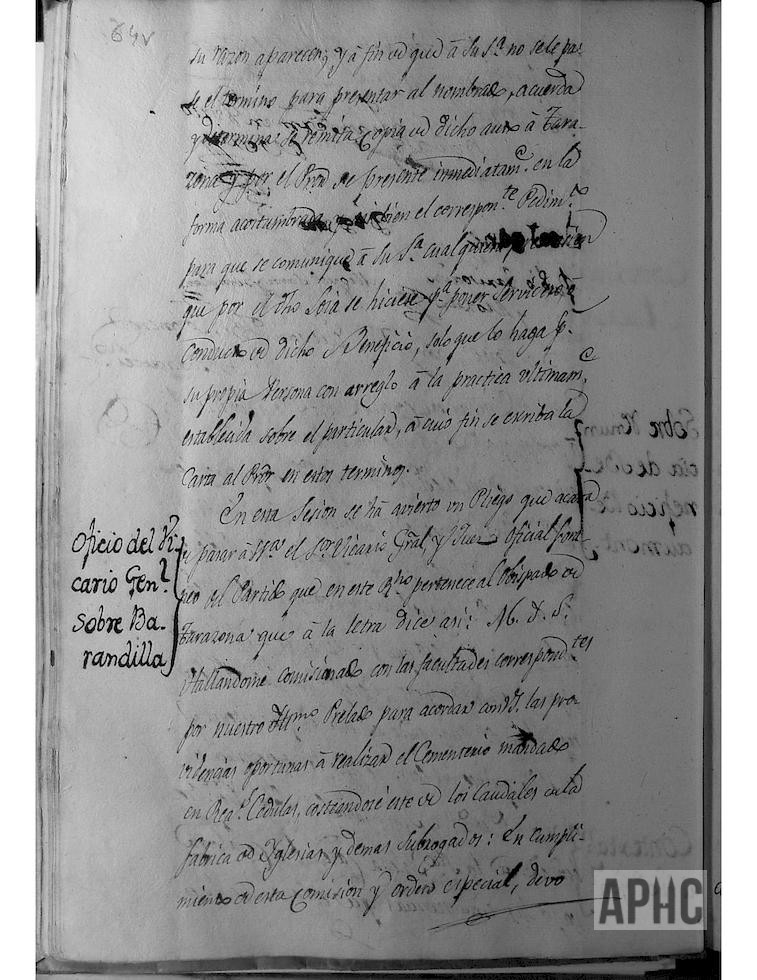 64v
su razon aparecen, y á fin de que á su S.ª no se le pa-
se el termino para presentar al nombrado, acuerda
y determina se remita copia de dicho auto á Tara-
zona y por el Pror se presente inmediatam.e en la
forma acostumbrada, bien el correspon.te Pedim.to
para que se comunique á su S.ª cualquiera
que por el dho se hiciese p.ª poner Servidero á
conducto de dicho Beneficio, solo que lo haga p.r
su propia Persona con arreglo á la practica ultimam.e
establecida sobre el particular, á cuio fin se escriba la
Carta al Pror en estos terminos.
Oficio del Vi-
cario Gen.l
sobre Ba-
randilla
En esta Sesion se há avierto un Pliego que acava
de pasar á el S.or Vicario Gral, y Juez oficial fora-
neo del Partido que en este R.no pertenece al Obispado de
Tarazona que á la letra dice asi: M. Y. S.
Hallandome comisionado con las facultades correspond.tes
por nuestro Ill.mo Prelado para acordar con V.S. las pro-
videncias oportunas á realizar el Cementerio mandado
en Rea.s Cedulas, costeandose este de los Caudales de la
fabrica de Yglesias y demas Subrogados: En cumpli-
miento de esta Comision y orden especial, devo
APHC